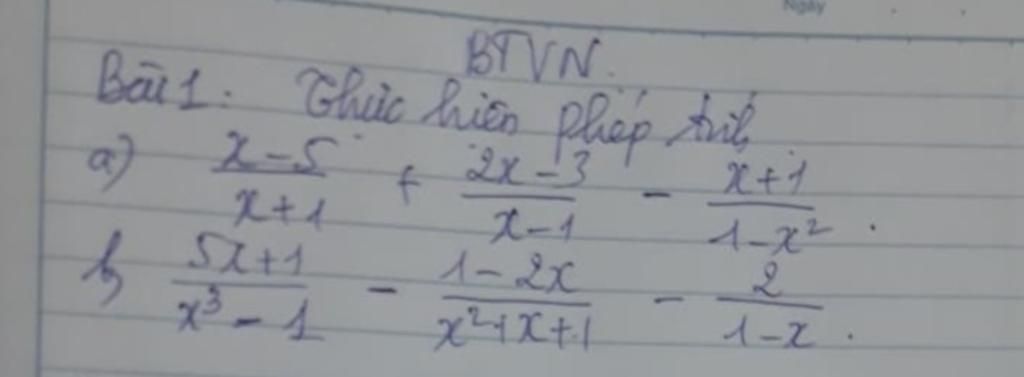 Ngày
BTVN.
Bài 1: Thực hiện phép tính
a) \frac{x-5}{x+1} + \frac{2x-3}{x-1} - \frac{x+1}{1-x^2}.
b) \frac{5x+1}{x^3-1} - \frac{1-2x}{x^2+x+1} - \frac{2}{1-x}.